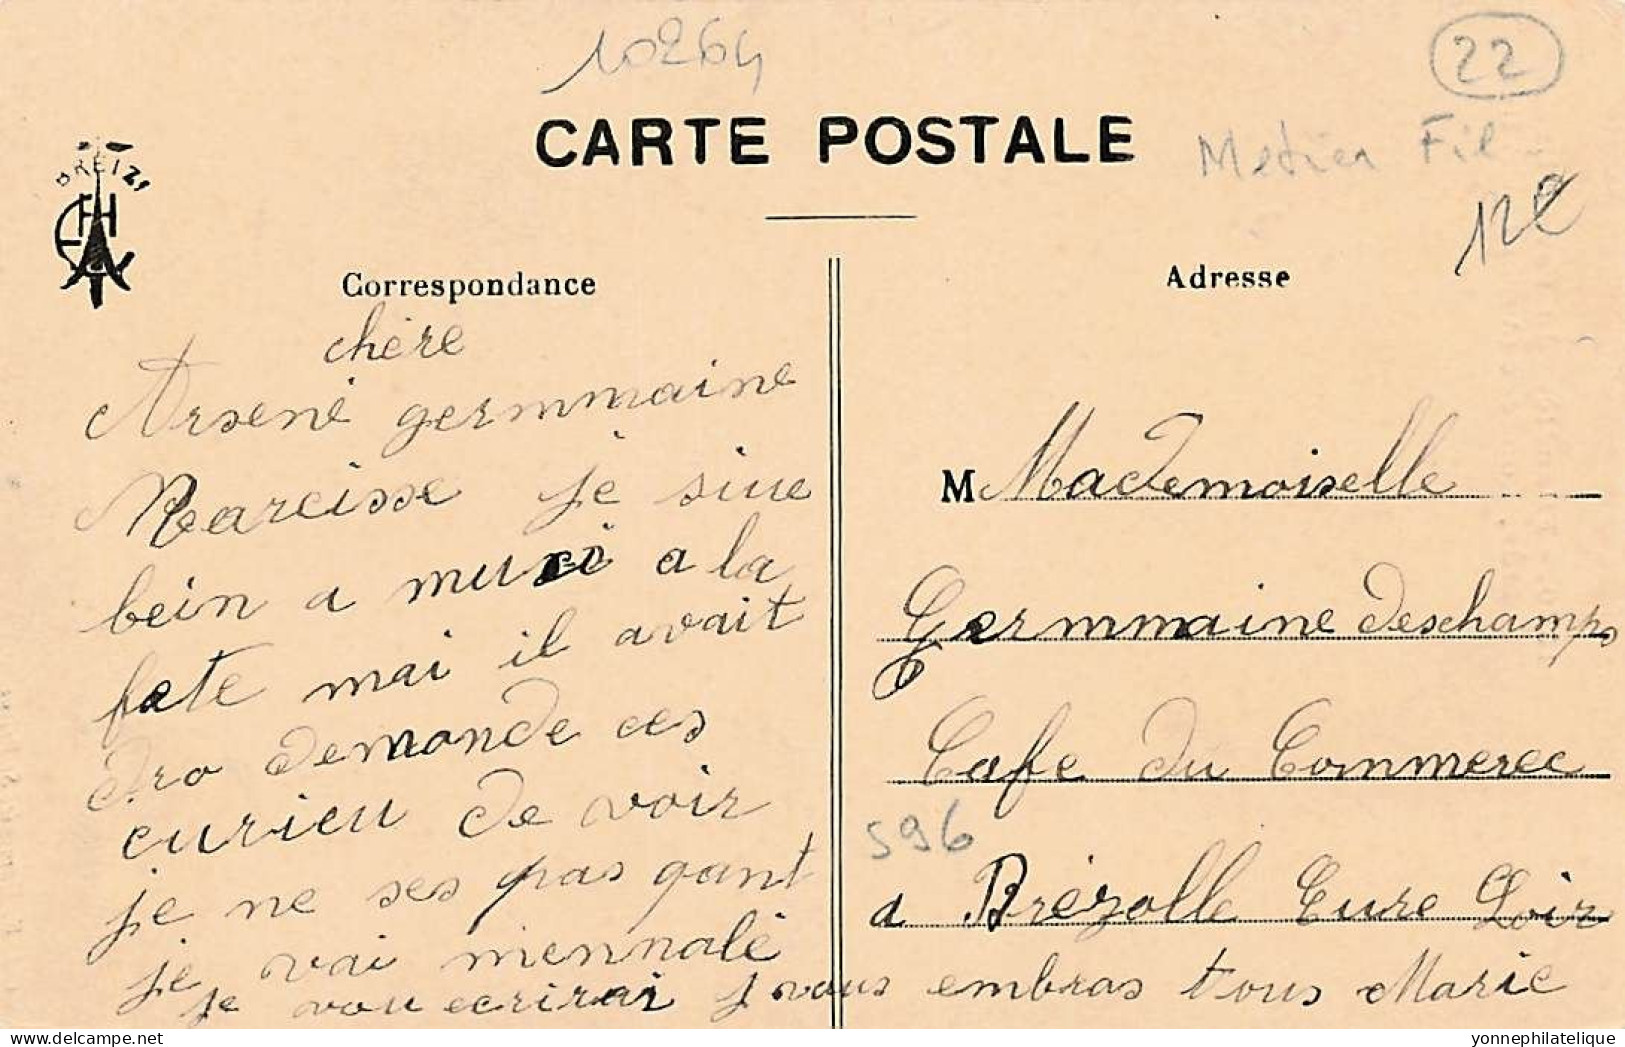 10264
22
CARTE POSTALE
Metier Fil
12€
BREIZ
Correspondance
Adresse
chère
Arsené germmaine
Narcisse je sine
bein a muri a la
fete mai il avait
dro demonde ces
curieu de voir
je ne ses pas gant
je vai mennalé
je vou ecrirai j vous embras tous Marie
M Mademoiselle
Germmaine deschamps
Cafe du Commerec
596
a Brézolle Eure Loir
yonnephilatelique